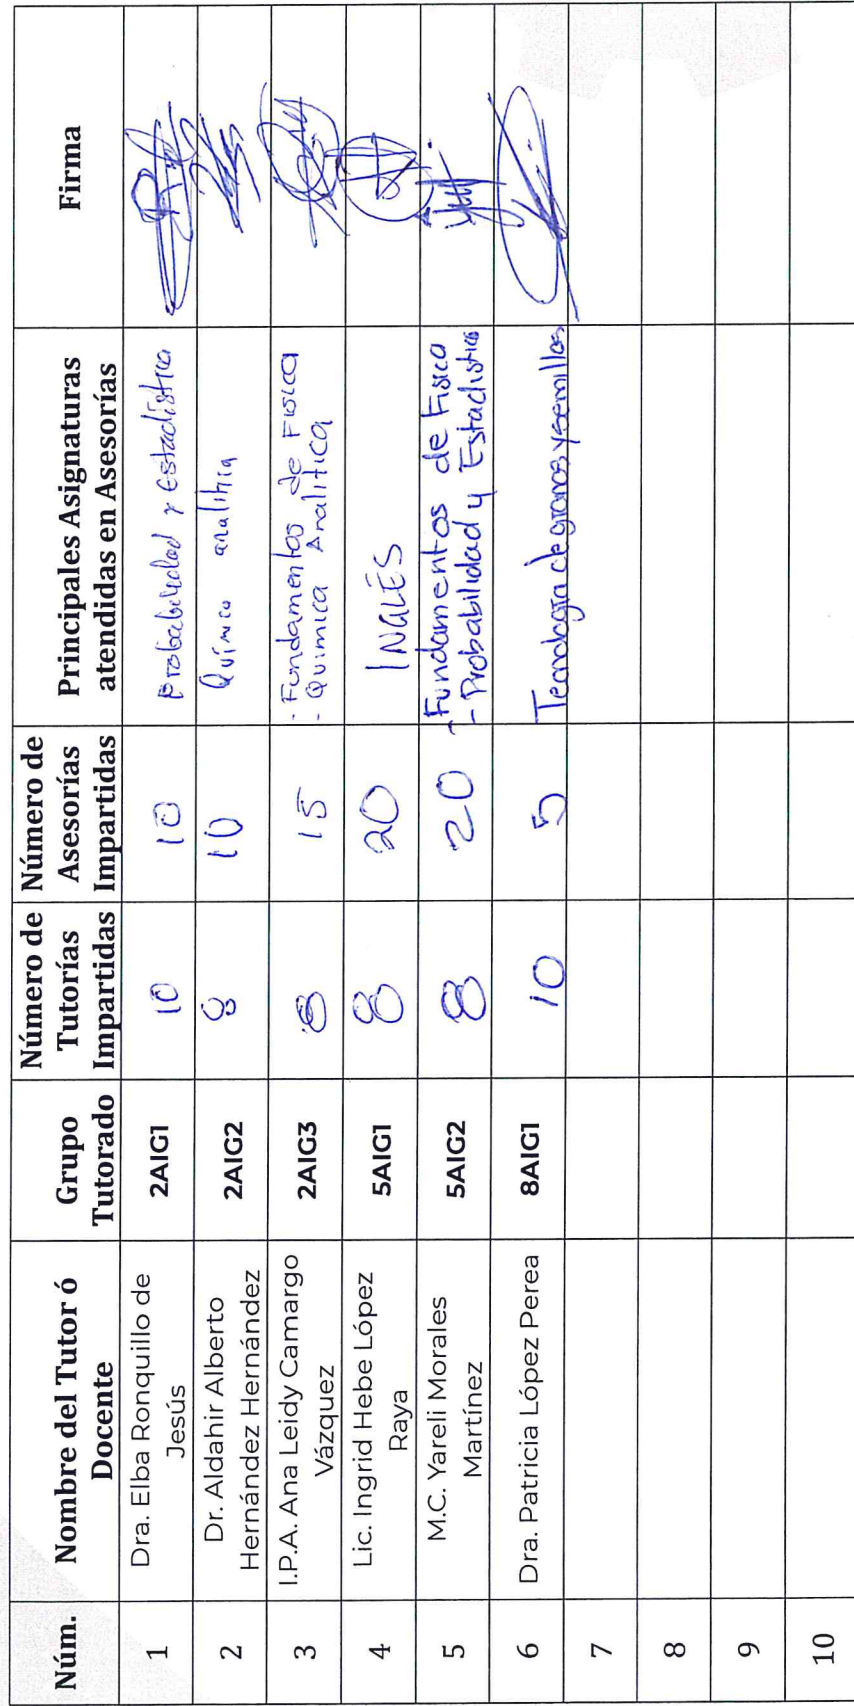 Núm. Nombre del Tutor ó Docente Grupo Tutorado Número de Tutorías Impartidas Número de Asesorías Impartidas Principales Asignaturas atendidas en Asesorías Firma
1 Dra. Elba Ronquillo de Jesús 2AIG1 10 10 Probabilidad y Estadística
2 Dr. Aldahir Alberto Hernández Hernández 2AIG2 8 10 Química analítica
3 I.P.A. Ana Leidy Camargo Vázquez 2AIG3 8 15 - Fundamentos de Física
- Química Analítica
4 Lic. Ingrid Hebe López Raya 5AIG1 8 20 INGLÉS
5 M.C. Yareli Morales Martínez 5AIG2 8 20 - Fundamentos de Física
- Probabilidad y Estadística
6 Dra. Patricia López Perea 8AIG1 10 5 Tecnología de granos y semillas
7
8
9
10